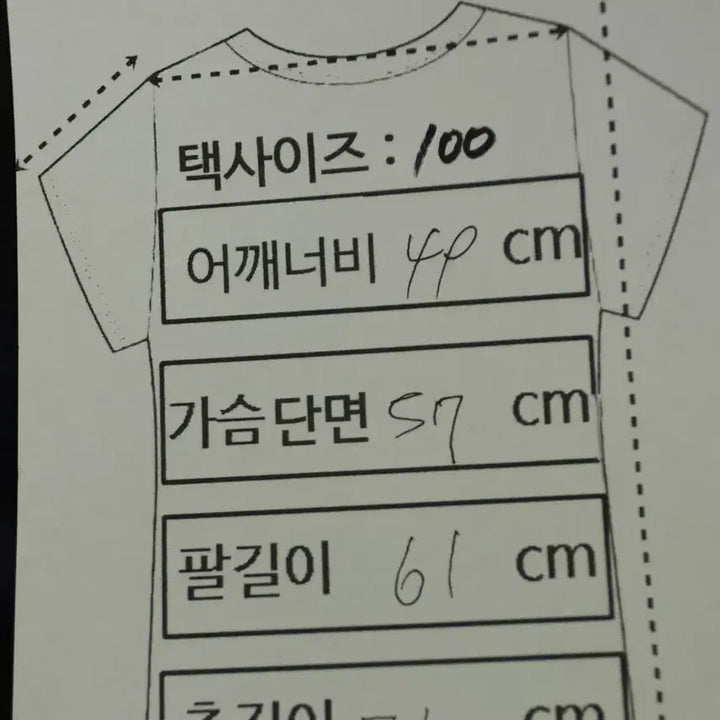 택사이즈 : 100
어깨너비 49 cm
가슴단면 57 cm
팔길이 61 cm
총길이 cm